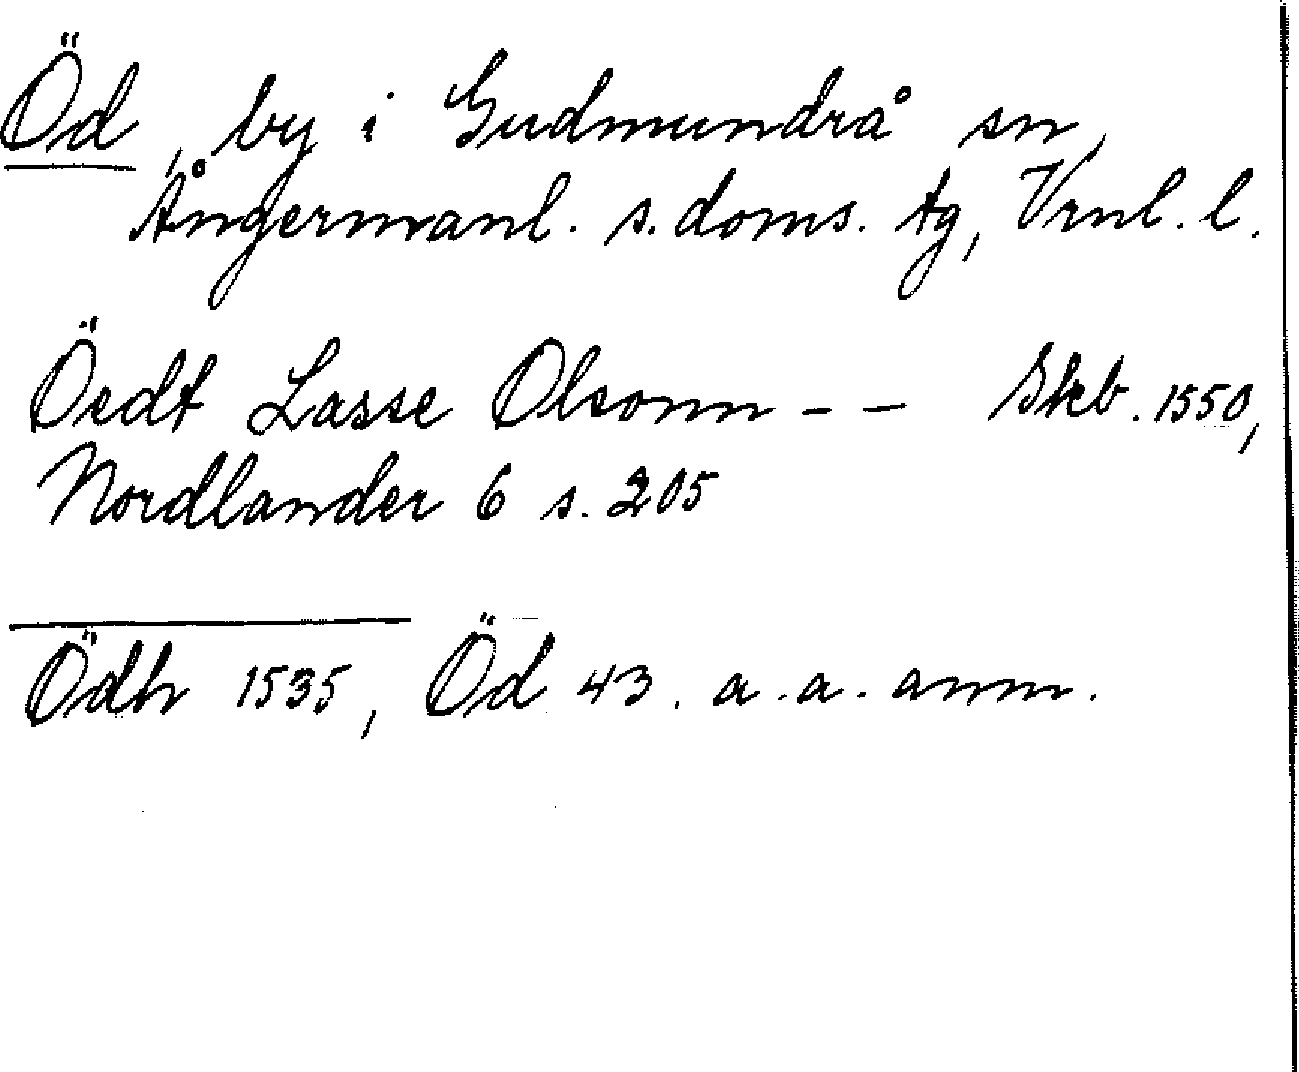 Öd, by i Gudmundrå sn,
Ångermanl. s. doms. tg, Vrnl. l.
Öedt Lasse Olsonn - - Skb. 1550,
Nordlander 6 s. 205
Ödh 1535, Öd 43. a. a. anm.